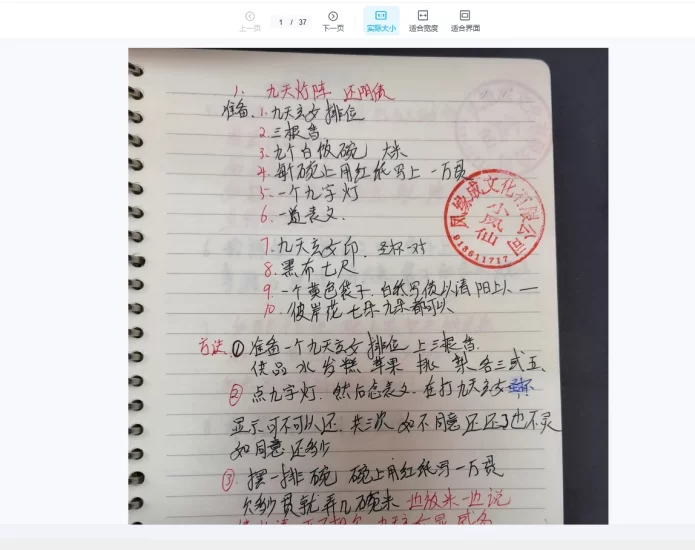 上一页
1 / 37
下一页
实际大小
适合宽度
适合界面
1、九天灯阵 还阴债
准备、1.九天玄女排位
2.三根香
3.九个白饭碗 大米
4.每碗上用红纸写上 一万贯
5.一个九字灯
6.一道表文.
7.九天玄女印. 圣杯一对
8.黑布七尺
9.一个黄色袋子.白纸写债以清 阳上人 —
10.彼岸花 七朵九朵都可以
凤缘成文化有限公司
小凤仙
018611717
方法 ① 准备一个九天玄女 排位 上三根香.
供品 水 发糕 苹果 桃 梨 各三或五、
② 点九字灯. 然后念表文. 在打九天玄女圣杯
显示可不可以还. 共三次 如不同意还 还了也不灵
如同意 还多少
③ 摆一排碗 碗上用红纸写一万贯
欠多少贯就弄几碗米 边放米一边说